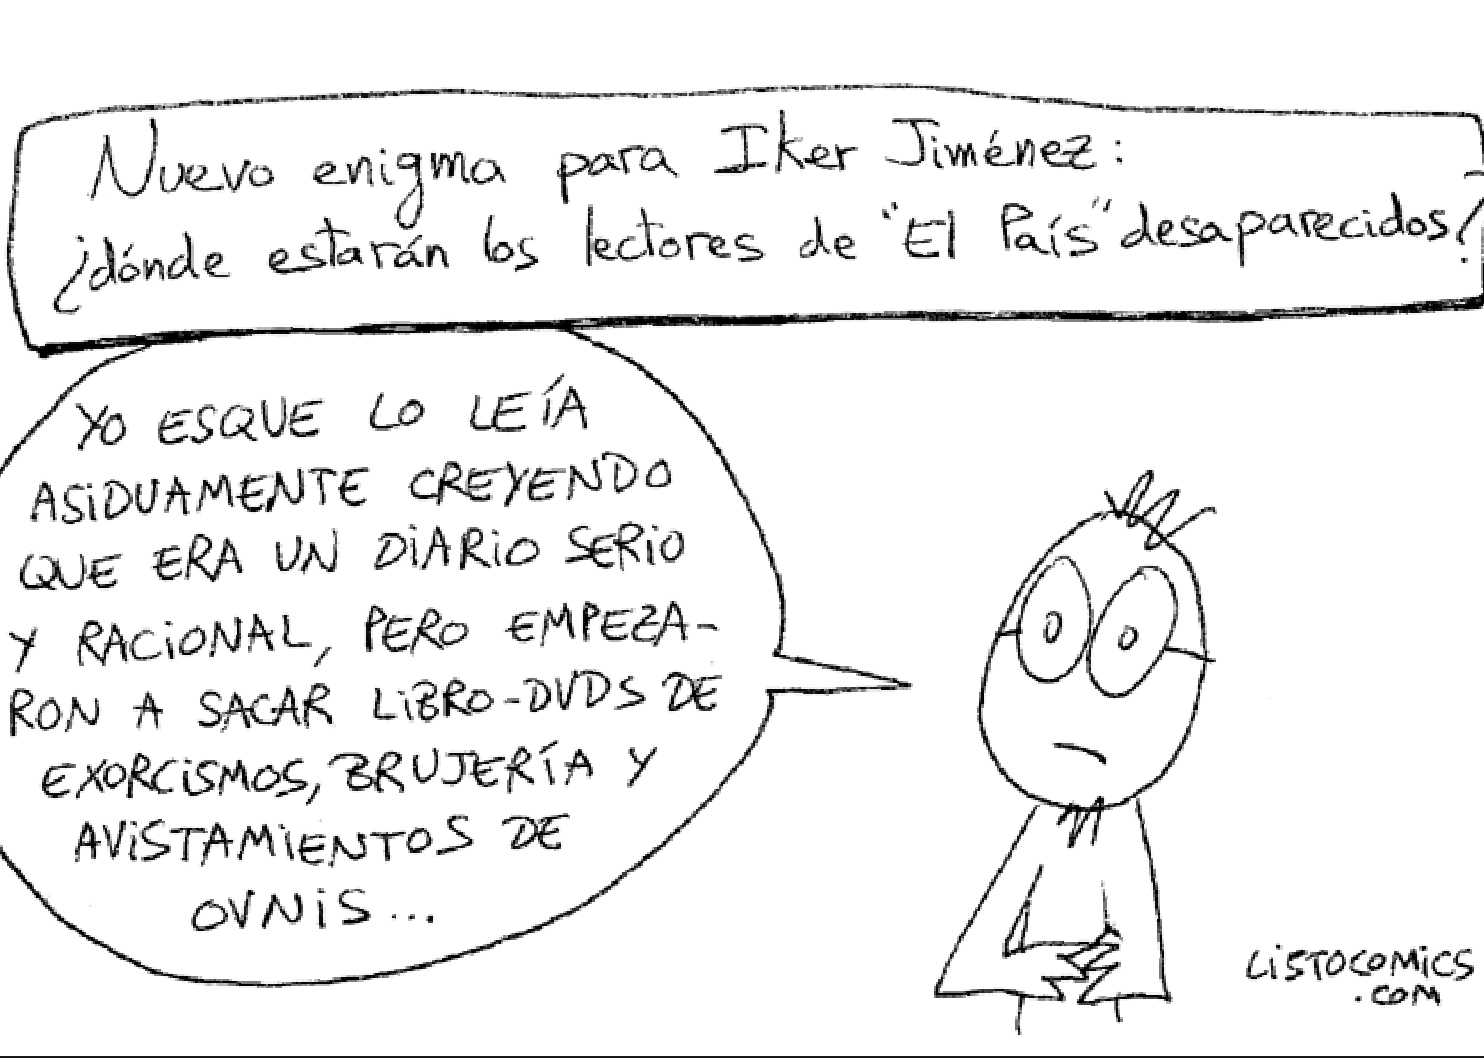 Nuevo enigma para Iker Jiménez:
¿dónde estarán los lectores de "El País" desaparecidos?
YO ESQUE LO LEÍA
ASIDUAMENTE CREYENDO
QUE ERA UN DIARIO SERIO
Y RACIONAL, PERO EMPEZA-
RON A SACAR LIBRO-DVDS DE
EXORCISMOS, BRUJERÍA Y
AVISTAMIENTOS DE
OVNIS...
LISTOCOMICS
.COM